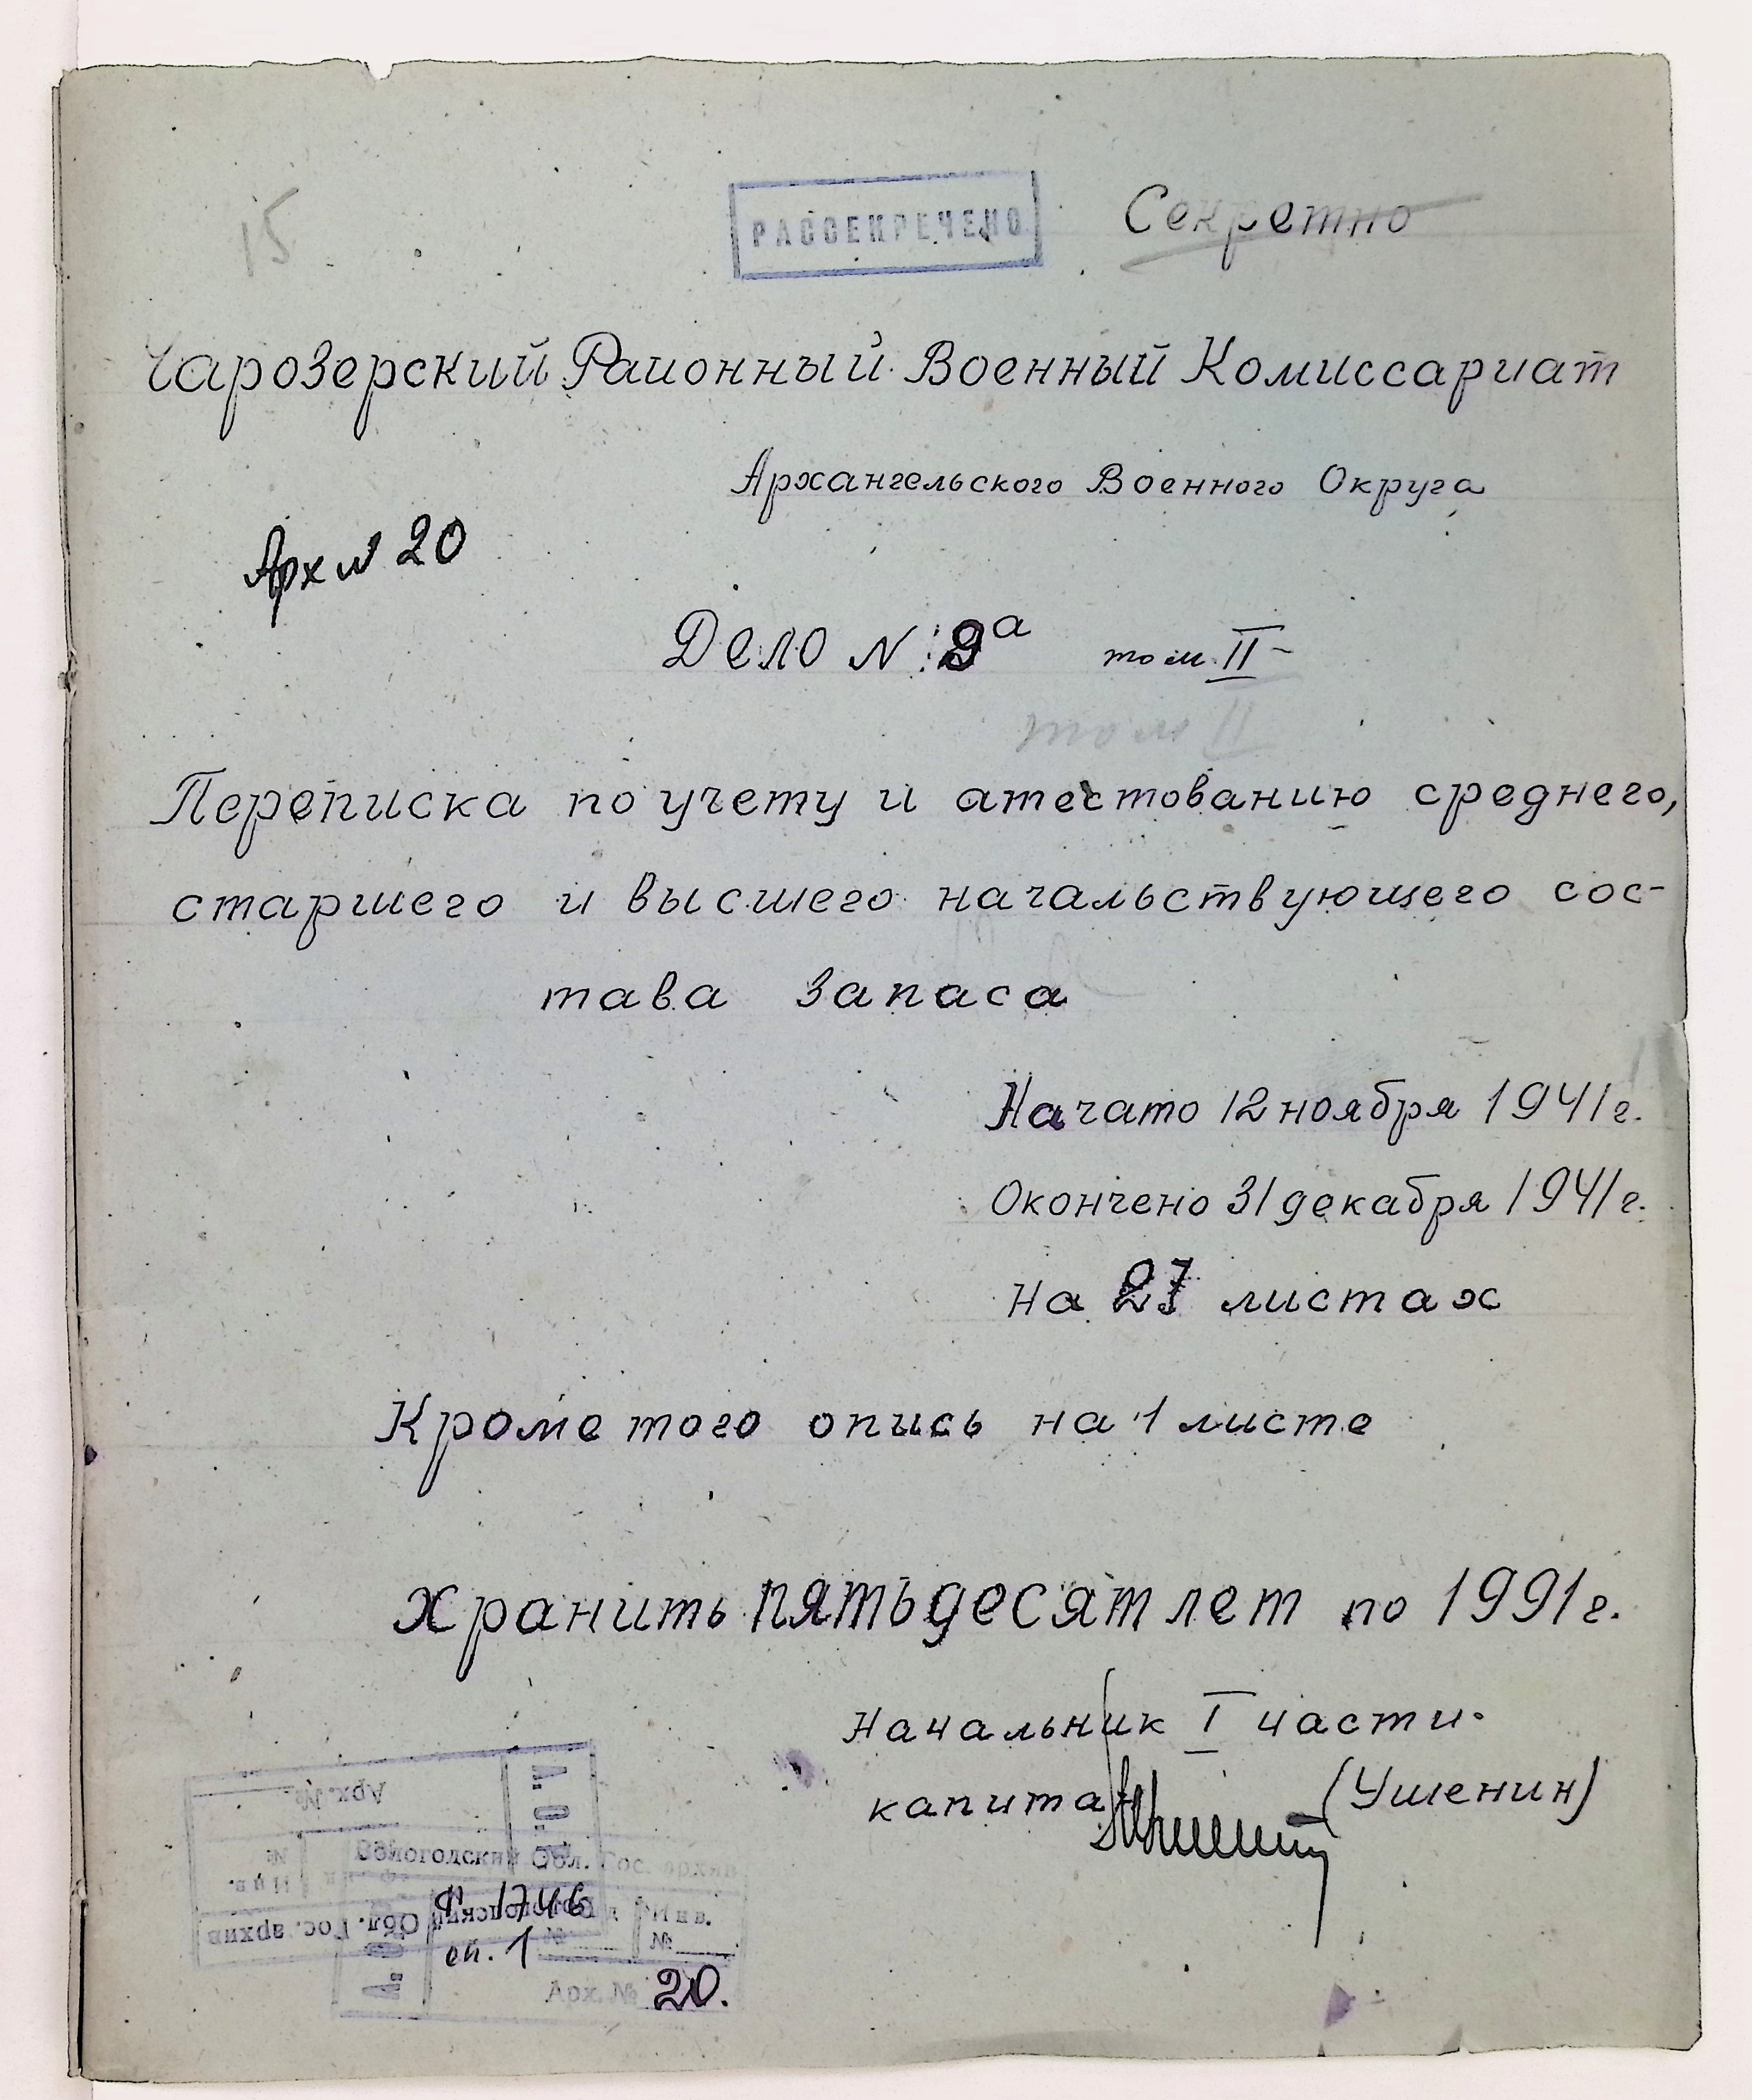 15
РАССЕКРЕЧЕНО
Секретно
Чарозерский Районный Военный Комиссариат
Архангельского Военного Округа
Арх N 20
Дело N: 9а том II
том II
Переписка по учету и атестованию среднего,
старшего и высшего начальствующего сос-
тава запаса
Начато 12 ноября 1941 г.
Окончено 31 декабря 1941 г.
На 27 листах
Кроме того опись на 1 листе
Хранить пятьдесят лет по 1991 г.
Начальник I части
капитан (Ушенин)
Арх. №
№
Инв.
Вологодский Обл. Гос. архив
Ф. 1746
Вологодский Обл. Гос. архив
Инв.
№
оп. 1
Арх. № 20.